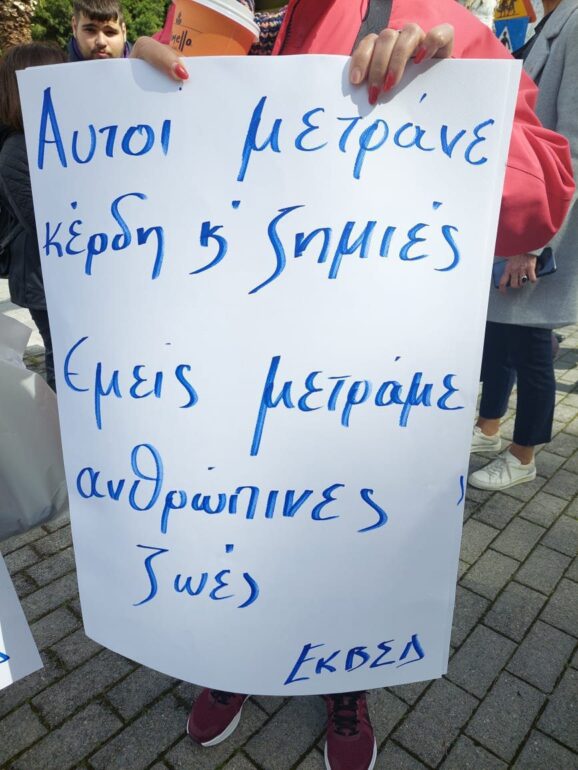 Αυτοι μετράνε
κέρδη κ' ζημιές
Εμείς μετράμε
ανθρώπινες
ζωές
ΕΚΒΕΔ